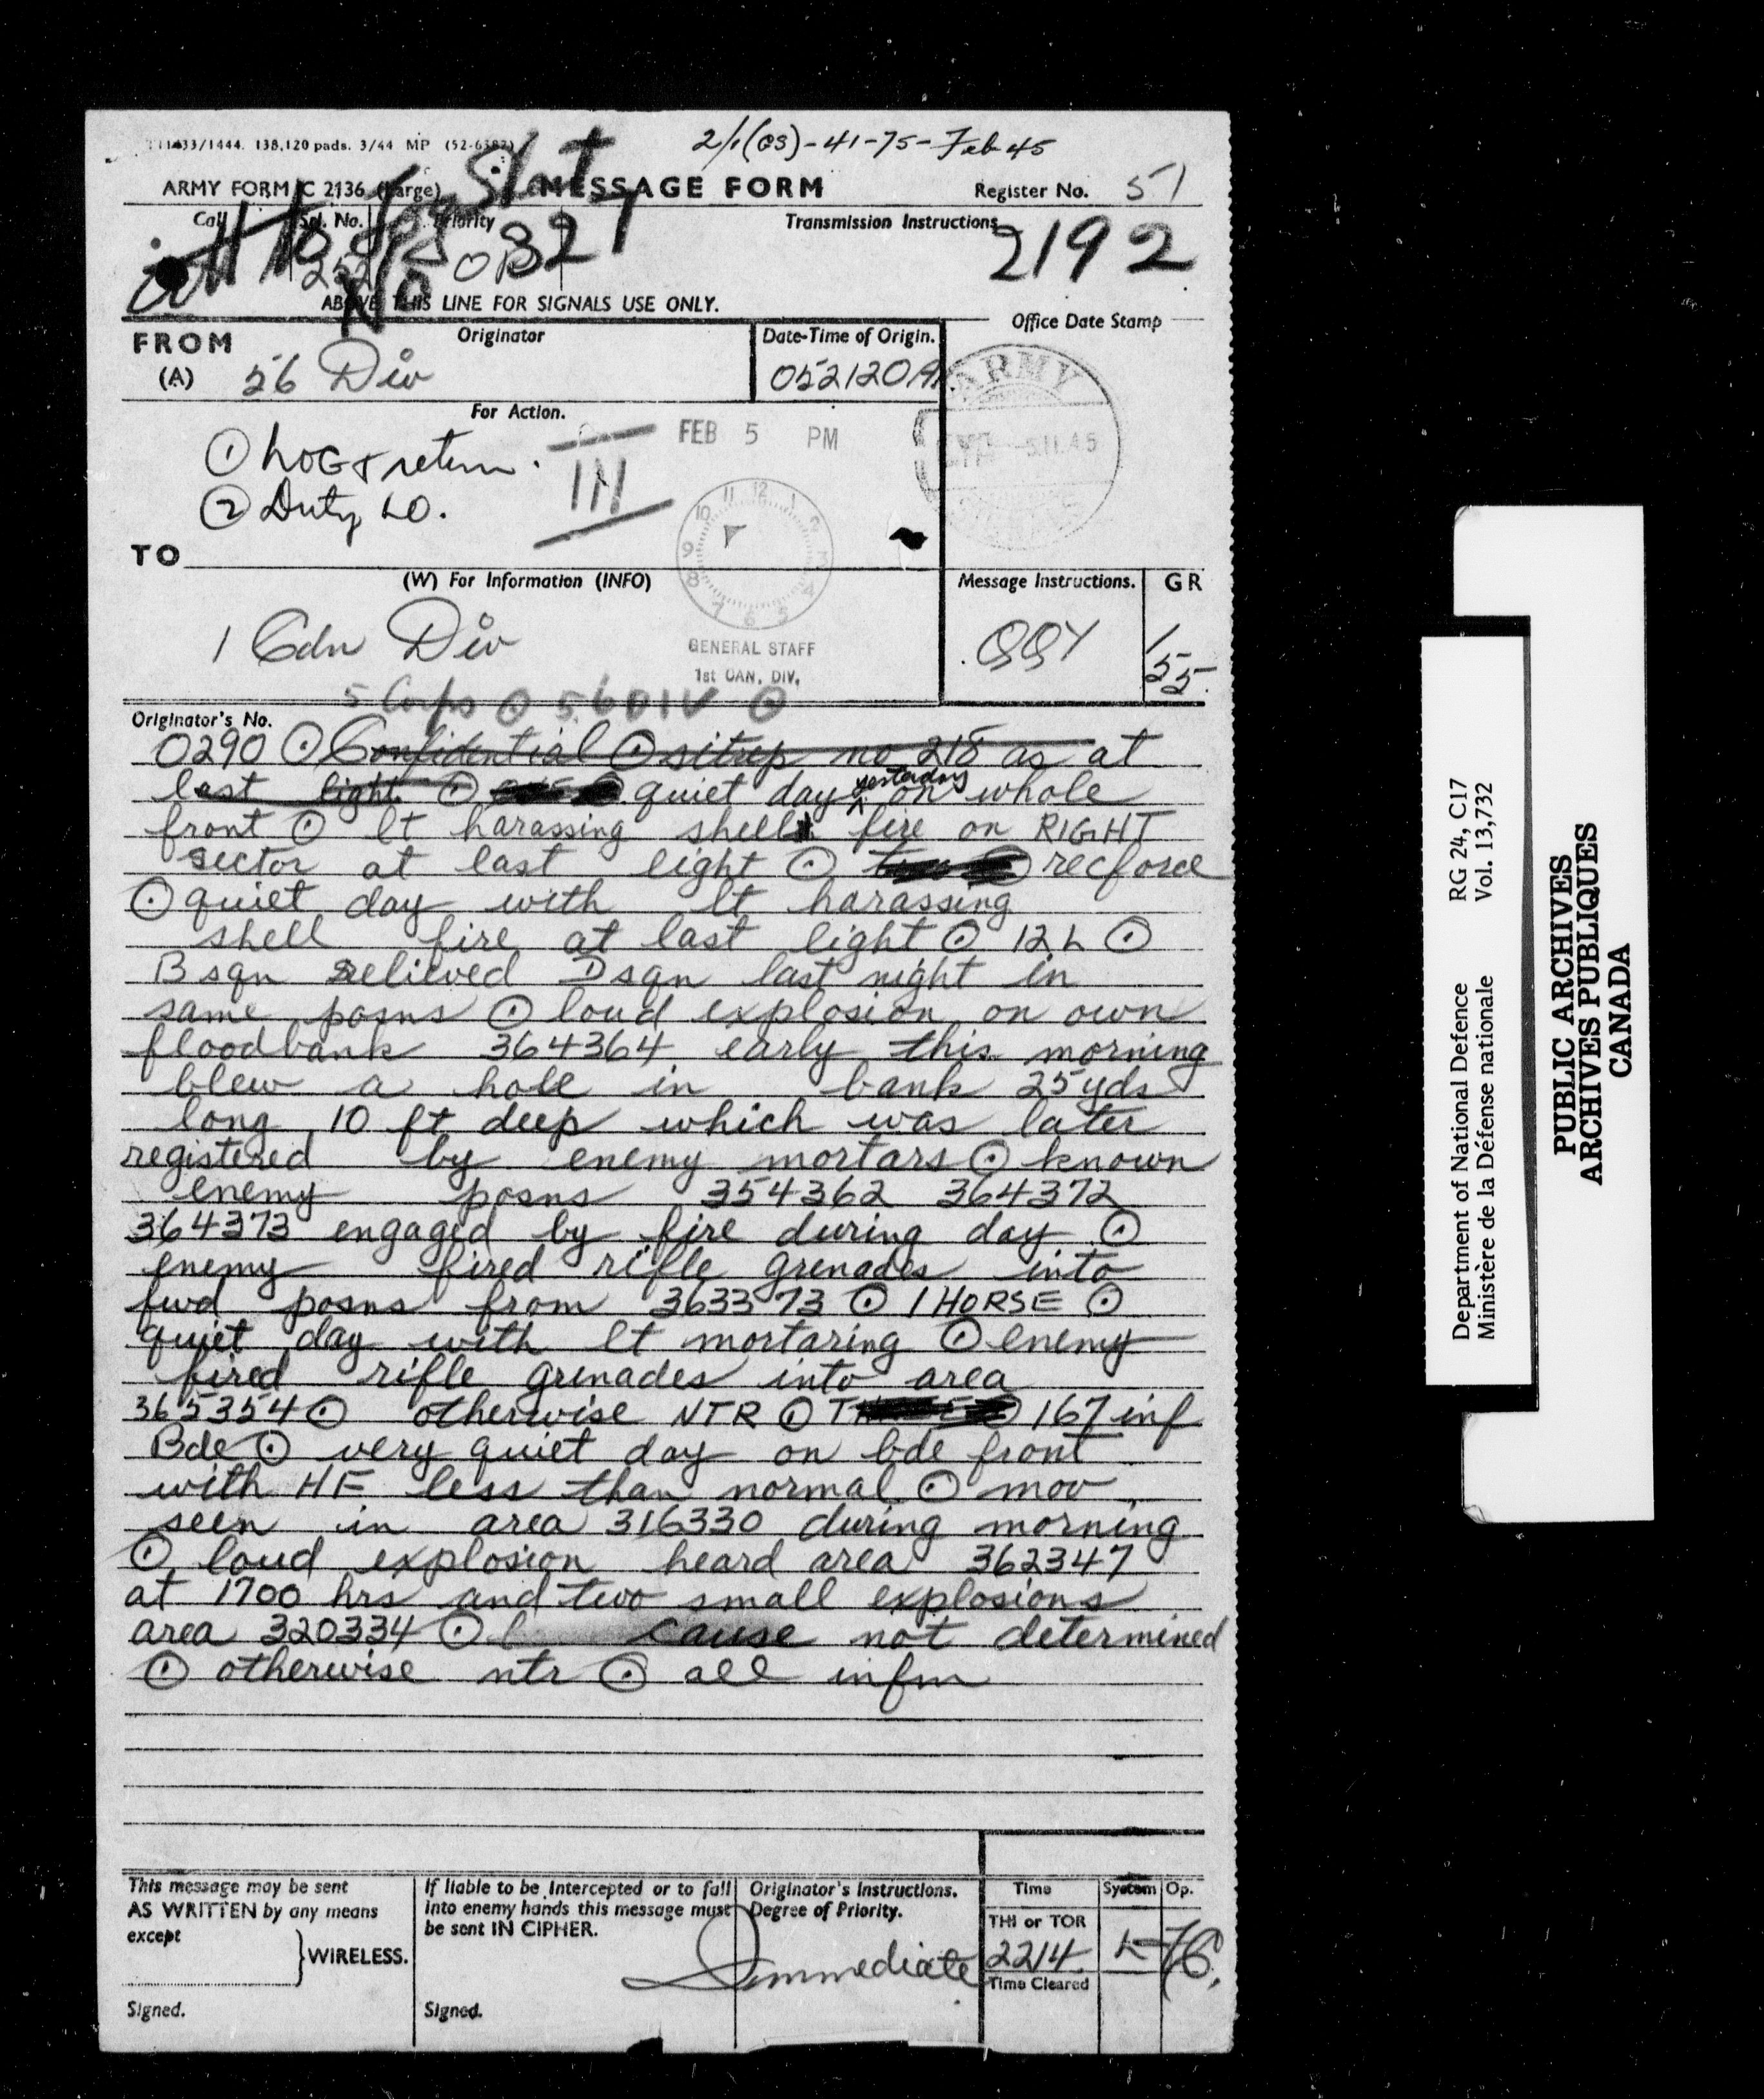 111433/1444. 138,120 pads. 3/44 MP (52-6382)
2/1(GS)-41-75-Feb 45
ARMY FORM C 2136 (Large)
MESSAGE FORM
Register No. 51
Call
Srl. No.
Priority
Transmission Instructions
252
2192
ABOVE THIS LINE FOR SIGNALS USE ONLY.
Office Date Stamp
FROM
(A)
Originator
56 Div
Date-Time of Origin.
052120A
ARMY
5.II.45
For Action.
FEB 5 PM
① LOG & return.
② Duty LO.
TO
(W) For Information (INFO)
Message Instructions.
GR
1 Cdn Div
QQY
155
GENERAL STAFF
1st CAN. DIV.
5 Corps ⊙ 56 DIV ⊙
Originator's No.
0290 ⊙ Confidential ⊙ sitrep no 218 as at
last light ⊙ quiet day yesterday on whole
front ⊙ lt harassing shell fire on RIGHT
sector at last light ⊙ recforce
⊙ quiet day with lt harassing
shell fire at last light ⊙ 12 L ⊙
B sqn relieved D sqn last night in
same posns ⊙ loud explosion on own
floodbank 364364 early this morning
blew a hole in bank 25 yds
long 10 ft deep which was later
registered by enemy mortars ⊙ known
enemy posns 354362 364372
364373 engaged by fire during day ⊙
enemy fired rifle grenades into
fwd posns from 363373 ⊙ 1 HORSE ⊙
quiet day with lt mortaring ⊙ enemy
fired rifle grenades into area
365354 ⊙ otherwise NTR ⊙ 167 inf
Bde ⊙ very quiet day on bde front
with HF less than normal ⊙ mov
seen in area 316330 during morning
⊙ loud explosion heard area 362347
at 1700 hrs and two small explosions
area 320334 ⊙ cause not determined
⊙ otherwise ntr ⊙ all infm
This message may be sent
AS WRITTEN by any means
except
WIRELESS.
Signed.
If liable to be intercepted or to fall
into enemy hands this message must
be sent IN CIPHER.
Signed.
Originator's Instructions.
Degree of Priority.
Immediate
Time
System
Op.
THI or TOR
2214
Time Cleared
Department of National Defence
Ministère de la Défense nationale
RG 24, C17
Vol. 13,732
PUBLIC ARCHIVES
ARCHIVES PUBLIQUES
CANADA